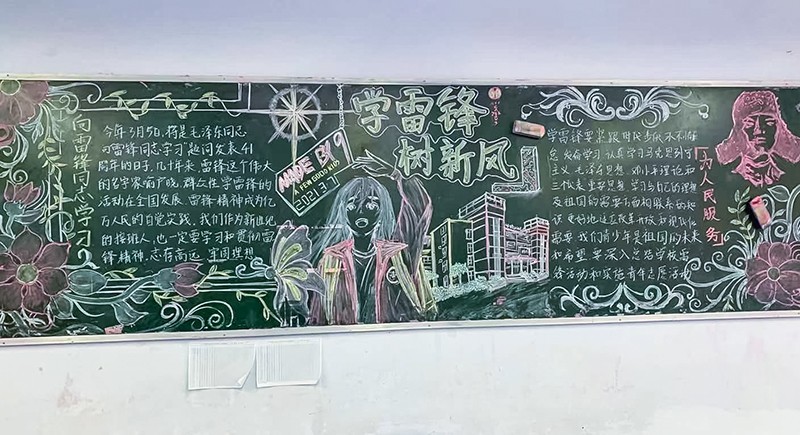 向雷锋同志学习
今年3月5日,将是毛泽东同志
向雷锋同志学习题词发表41
周年的日子,几十年来,雷锋这个伟大
的名字家喻户晓,群众性学雷锋的
活动在全国发展,雷锋精神成为亿
万人民的自觉实践,我们作为新世纪
的接班人,也一定要学习和贯彻雷
锋精神,志存高远
学雷锋
树新风
MADE BY 9
A FEW GOOD KIDS
2021.3.1
学雷锋要紧跟时代步伐不断
学习认真学习马克思列宁
主义、毛泽东思想、邓小平理论和
三个代表重要思想,学习与自己的理想
及祖国的需要方面相服务的知
识,更好地
需要,我们青少年是祖国的未来
和希望,要深入
锋活动和
为人民服务